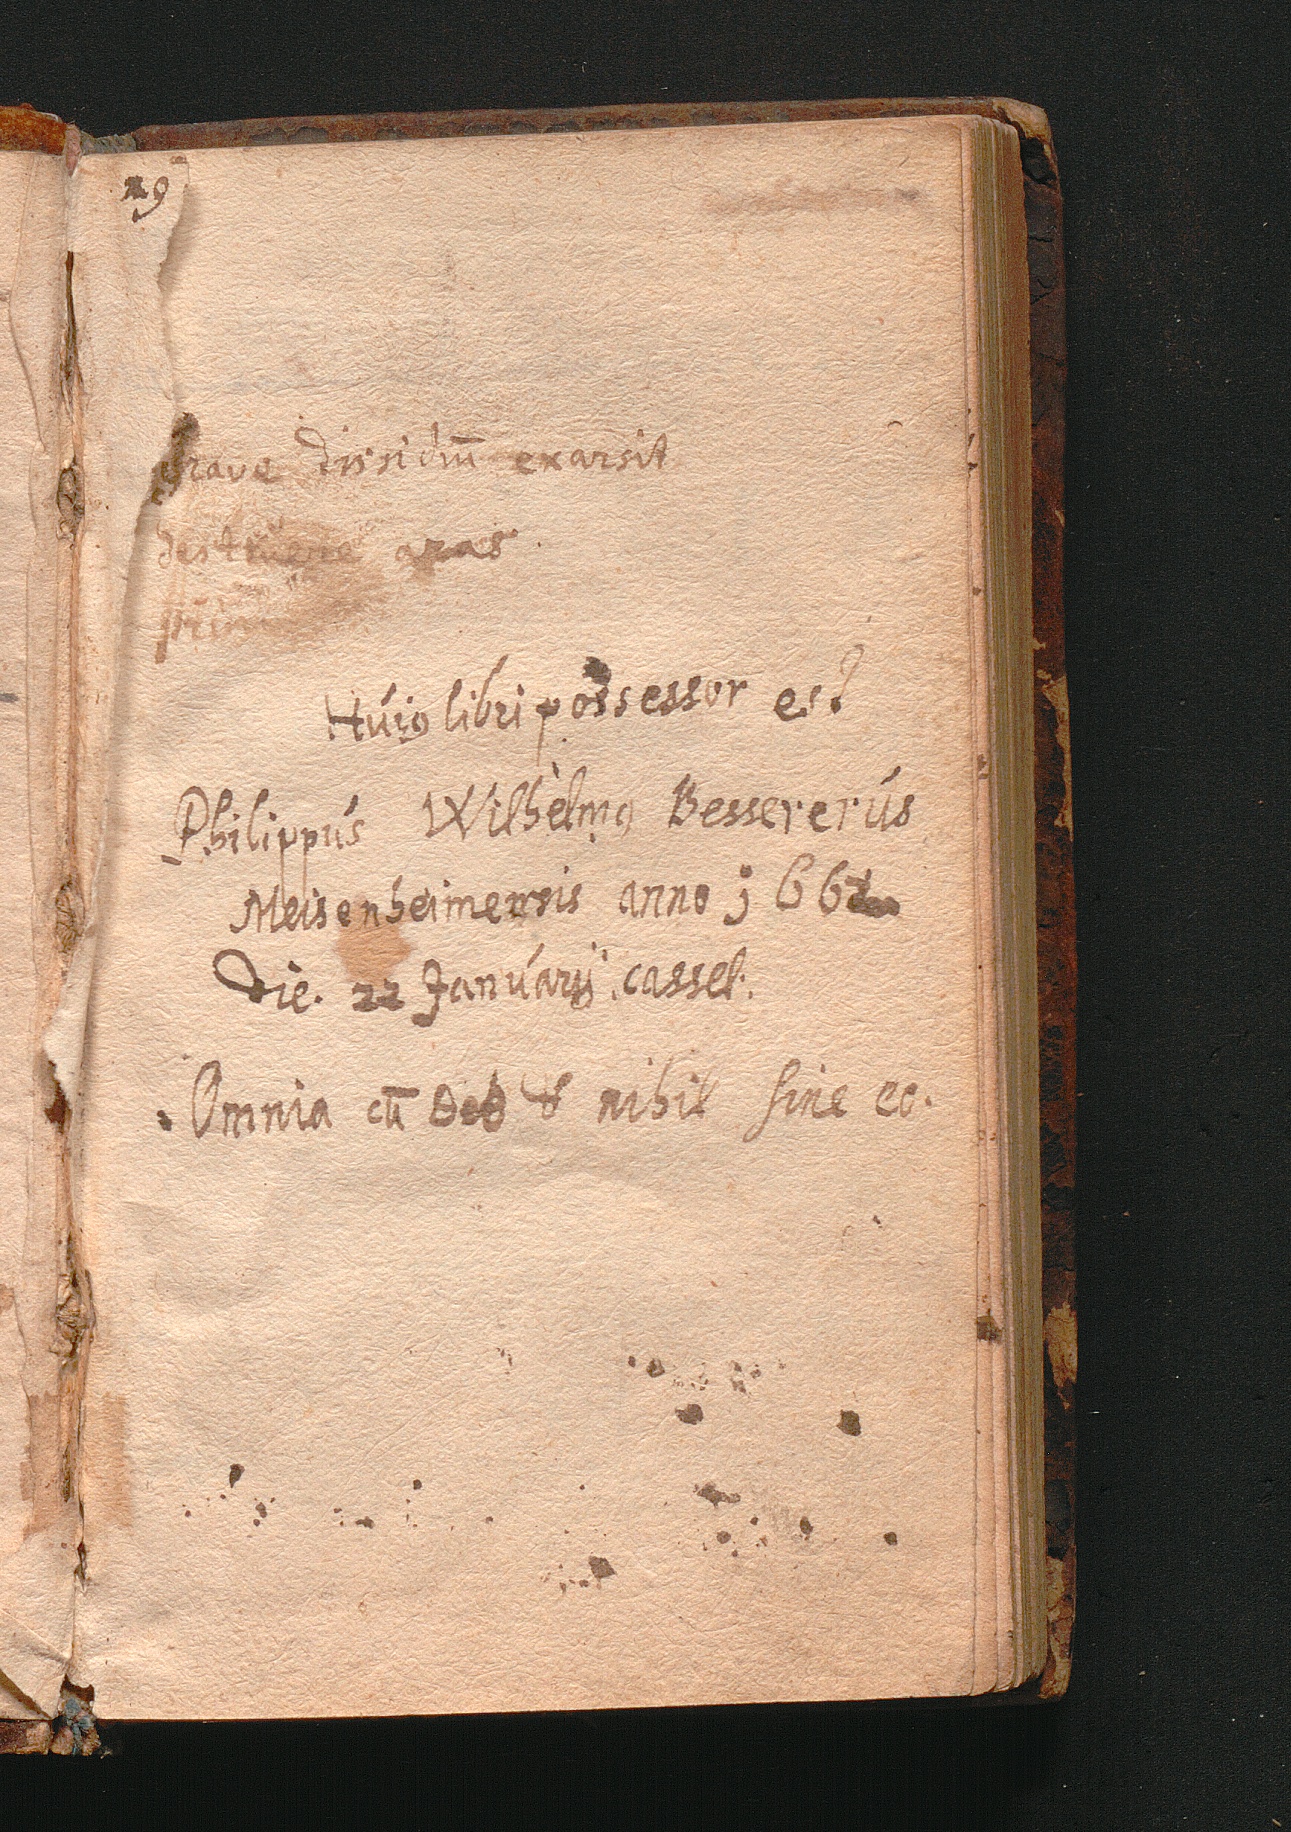 29
grave dissidiū exarsit
destruere aras
Huiꝰ libri possessor est
Philippús Wilhelmꝰ Bessererús
Meisenheimensis anno j66
Die. 22 Januarij. cassel.
Omnia cū Deo & nihil sine eo.